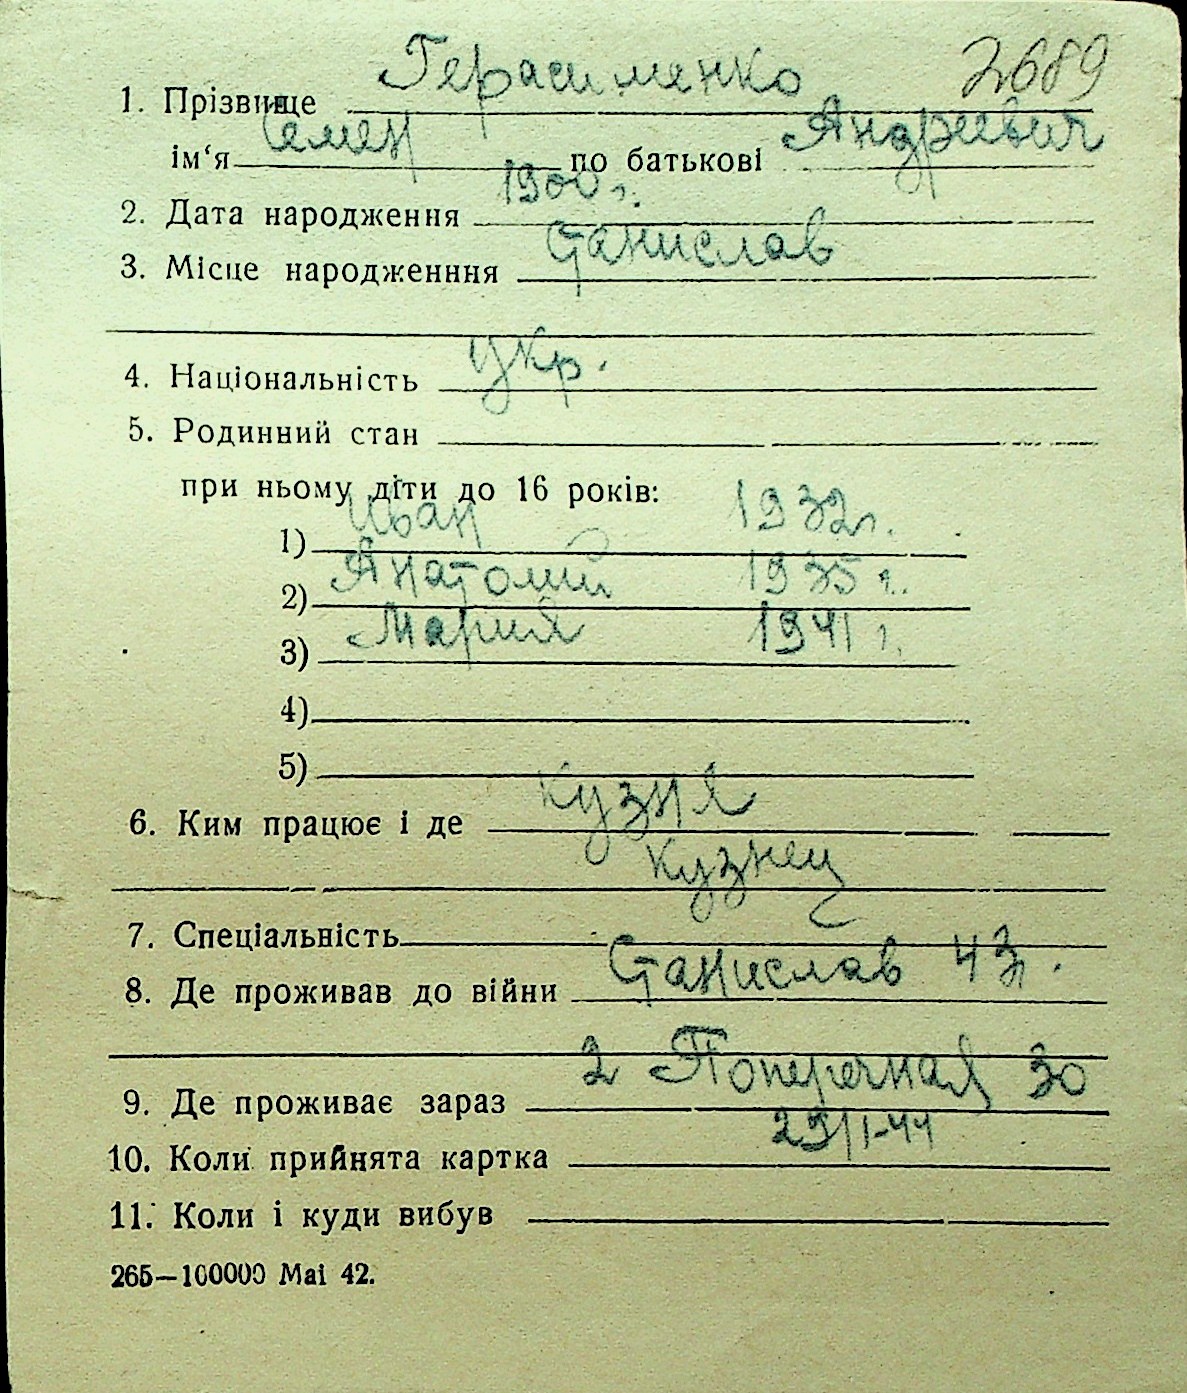 2689
1. Прізвище Герасименко
ім‘я Семен по батькові Андреевич
2. Дата народження 1900 г.
3. Місце народженння Станислав
4. Національність укр.
5. Родинний стан
при ньому діти до 16 років:
1) Иван 1932 г.
2) Анатолий 1935 г.
3) Мария 1941 г.
4)
5)
6. Ким працює і де Кузня
Кузнец
7. Спеціальність
8. Де проживав до війни Станислав 43
9. Де проживає зараз 2 Поперечная 30
10. Коли прийнята картка 29/I-44
11. Коли і куди вибув
265—100000 Mai 42.